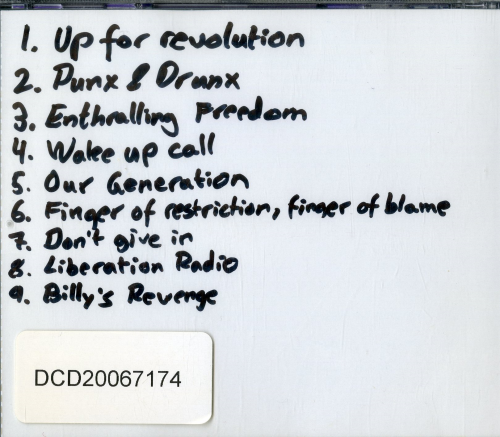 1. Up for revolution
2. Punx & Drunx
3. Enthralling Freedom
4. Wake up call
5. Our Generation
6. Finger of restriction, finger of blame
7. Don't give in
8. Liberation Radio
9. Billy's Revenge
DCD20067174